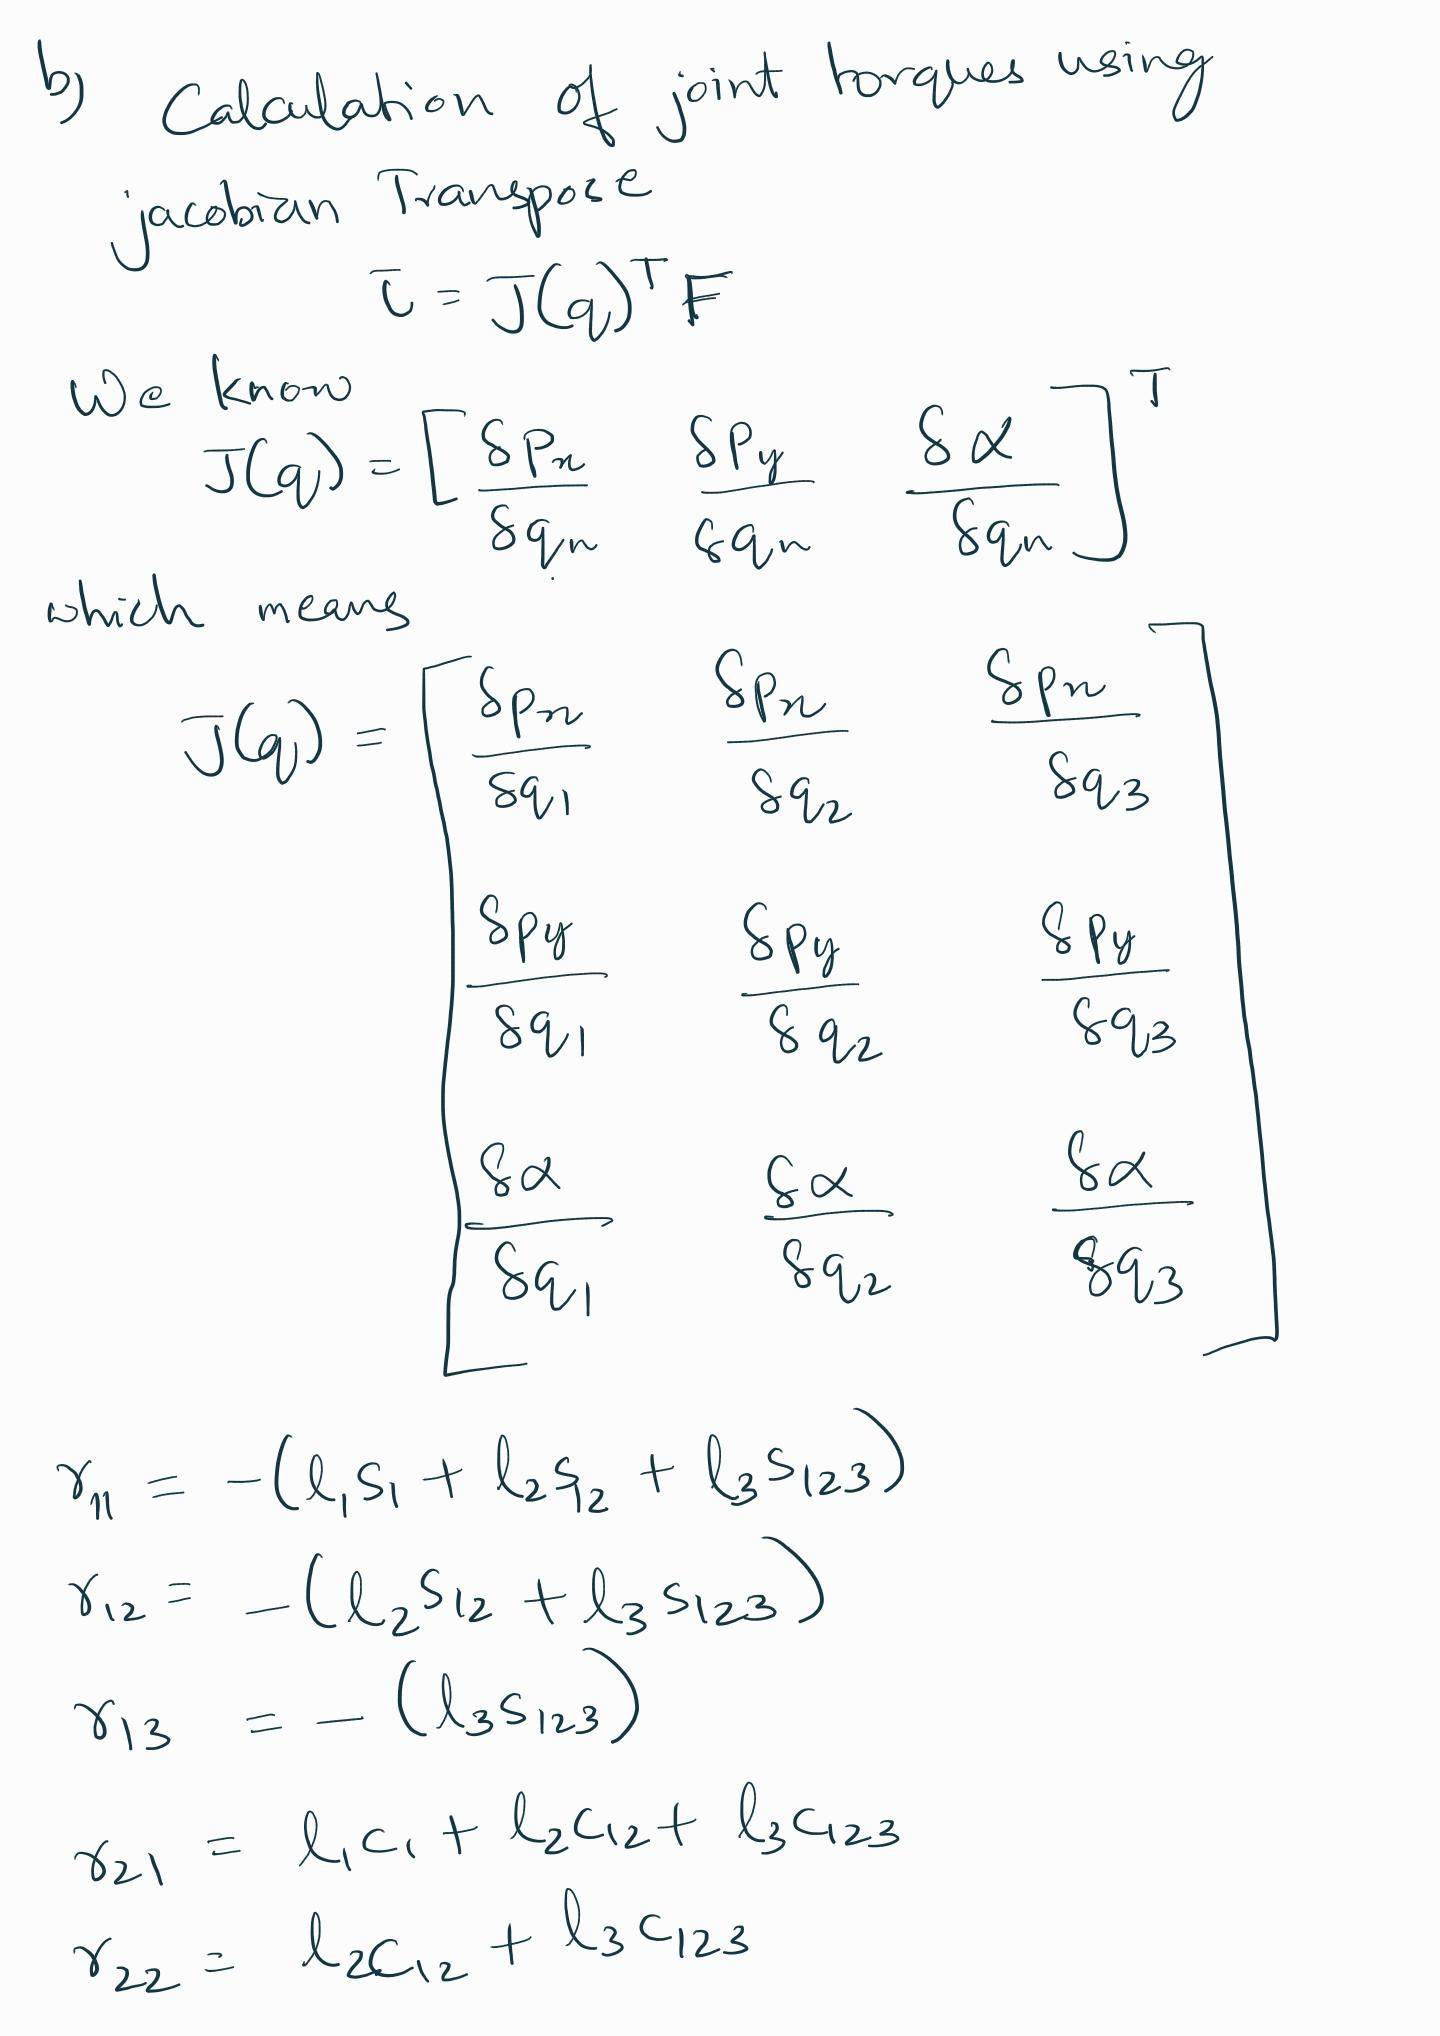 b) Calculation of joint torques using
jacobian Transpose
τ = J(q)^T F
We know
J(q) = [ δPx/δqn δPy/δqn δα/δqn ]^T
which means
J(q) = [ δpx/δq1 δpx/δq2 δpx/δq3
δpy/δq1 δpy/δq2 δpy/δq3
δα/δq1 δα/δq2 δα/δq3 ]
r11 = -(l1s1 + l2s12 + l3s123)
r12 = -(l2s12 + l3s123)
r13 = -(l3s123)
r21 = l1c1 + l2c12 + l3c123
r22 = l2c12 + l3c123